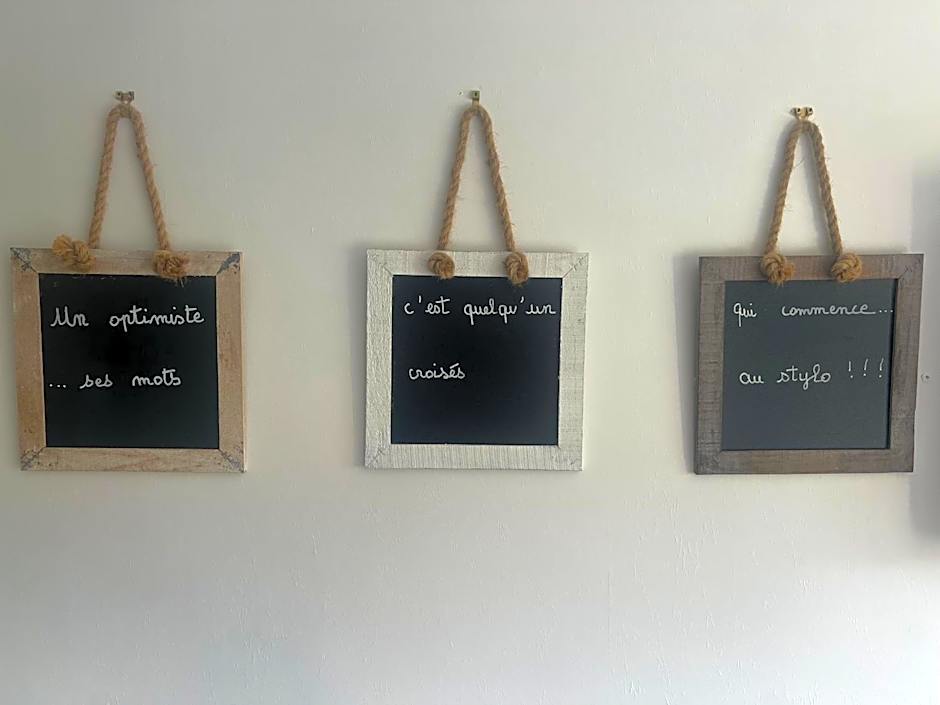 Un optimiste c'est quelqu'un qui commence...
... ses mots croisés au stylo !!!